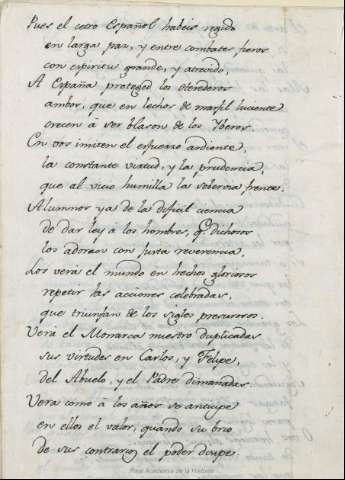 Pues el cetro Español habeis regido
en larga paz, y entre combates fieros
con espiritu grande, y atrevido,
A España proteged los herederos
ambos, que en lechos de marfil luciente
crecen à ser blason de los Yberos.
En vos imiten el esfuerzo ardiente,
la constante virtud, y la prudencia,
que al vicio humilla la soberbia frente.
Alumnos ya de la dificil ciencia
de dar ley à los hombres, qe. dichosos
los adoran con justa reverencia,
Los verà el mundo en hechos gloriosos
repetir las acciones celebradas,
que triunfan de los siglos presurosos.
Verà el Monarca nuestro duplicadas
sus virtudes en Carlos, y Felipe,
del Abuelo, y el Padre dimanadas
Verà como à los años se anticipe
en ellos el valor, quando su brio
de sus contrarios el poder disipe.
Real Academia de la Historia